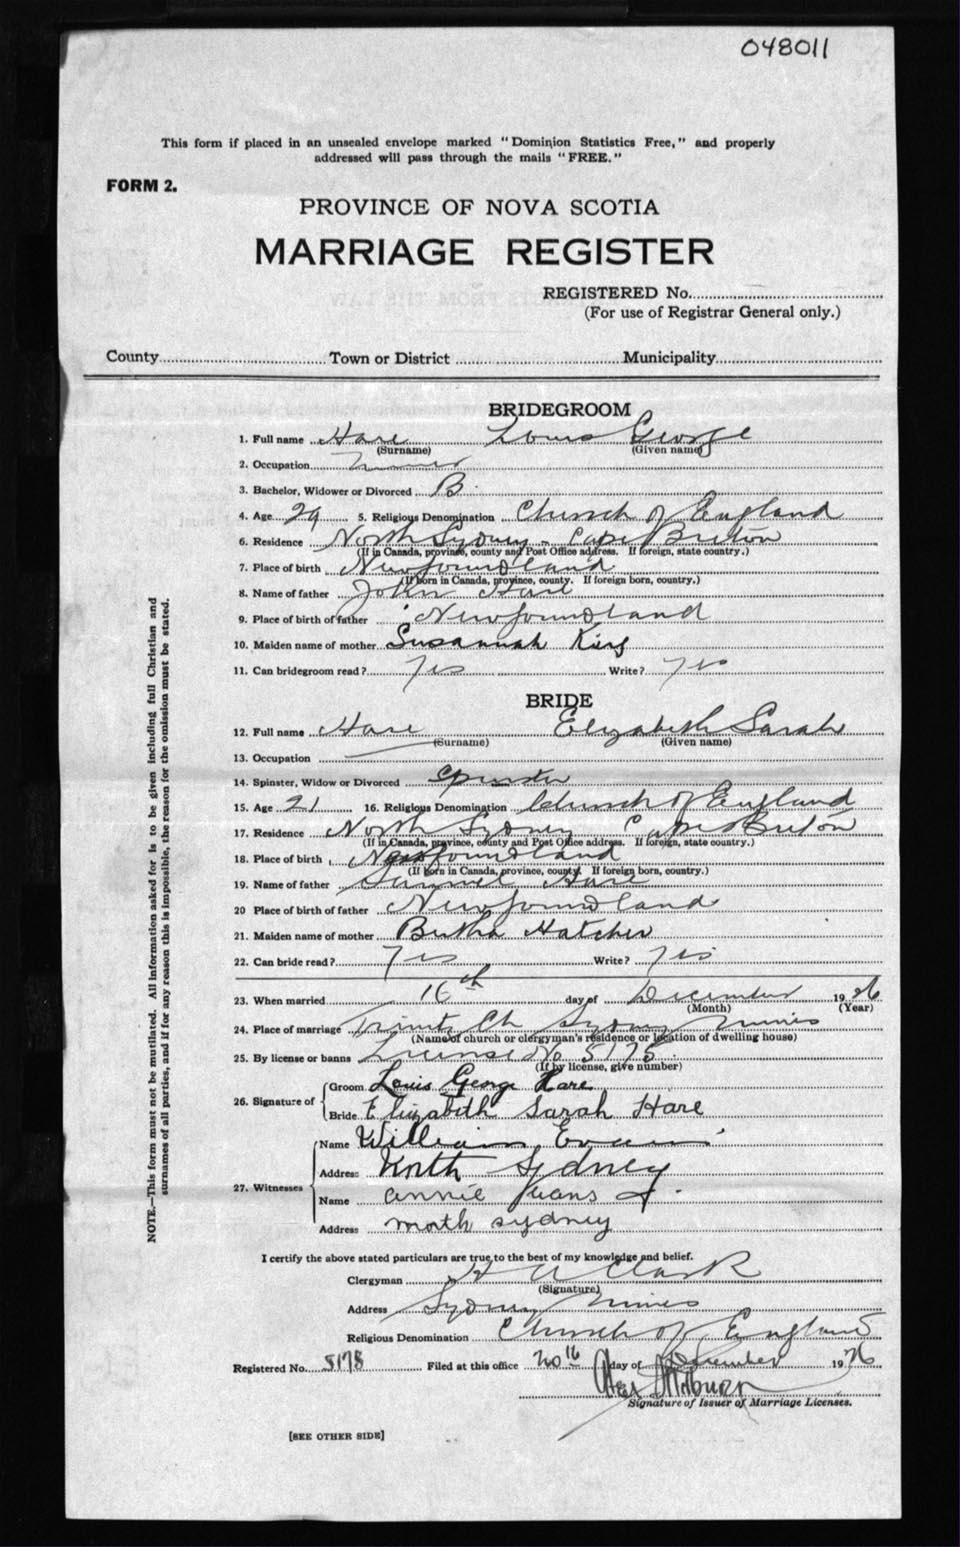 048011
This form if placed in an unsealed envelope marked "Dominion Statistics Free," and properly
addressed will pass through the mails "FREE."
FORM 2.
PROVINCE OF NOVA SCOTIA
MARRIAGE REGISTER
REGISTERED No.
(For use of Registrar General only.)
County Town or District Municipality
BRIDEGROOM
1. Full name Hare Louis George
(Surname) (Given name)
2. Occupation Miner
3. Bachelor, Widower or Divorced B.
4. Age 29 5. Religious Denomination Church of England
6. Residence North Sydney - Cape Breton
(If in Canada, province, county and Post Office address. If foreign, state country.)
7. Place of birth Newfoundland
(If born in Canada, province, county. If foreign born, country.)
8. Name of father John Hare
9. Place of birth of father Newfoundland
10. Maiden name of mother Susannah King
11. Can bridegroom read? Yes Write? Yes
BRIDE
12. Full name Hare Elizabeth Sarah
(Surname) (Given name)
13. Occupation
14. Spinster, Widow or Divorced Spinster
15. Age 21 16. Religious Denomination Church of England
17. Residence North Sydney Cape Breton
(If in Canada, province, county and Post Office address. If foreign, state country.)
18. Place of birth Newfoundland
(If born in Canada, province, county. If foreign born, country.)
19. Name of father Hare
20 Place of birth of father Newfoundland
21. Maiden name of mother Bertha Hatcher
22. Can bride read? Yes Write? Yes
23. When married 16th day of December 1926
(Month) (Year)
24. Place of marriage Trinity Ch Sydney Mines
(Name of church or clergyman's residence or location of dwelling house)
25. By license or banns License No 5175
(If by license, give number)
26. Signature of Groom Louis George Hare
Bride Elizabeth Sarah Hare
27. Witnesses Name William Evans
Address North Sydney
Name annie Evans
Address north sydney
I certify the above stated particulars are true to the best of my knowledge and belief.
Clergyman H A Clark
(Signature)
Address Sydney Mines
Religious Denomination Church of England
Registered No. 5178 Filed at this office 20th day of December 1926
Signature of Issuer of Marriage Licenses.
[SEE OTHER SIDE]
NOTE.—This form must not be mutilated. All information asked for is to be given including full Christian and
surnames of all parties, and if for any reason this is impossible, the reason for the omission must be stated.